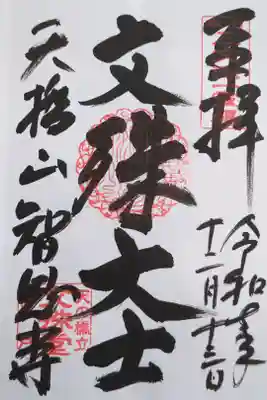 奉拝
令和
十二月十三日
文殊大士
天橋山智恩寺
天の橋立
文殊堂